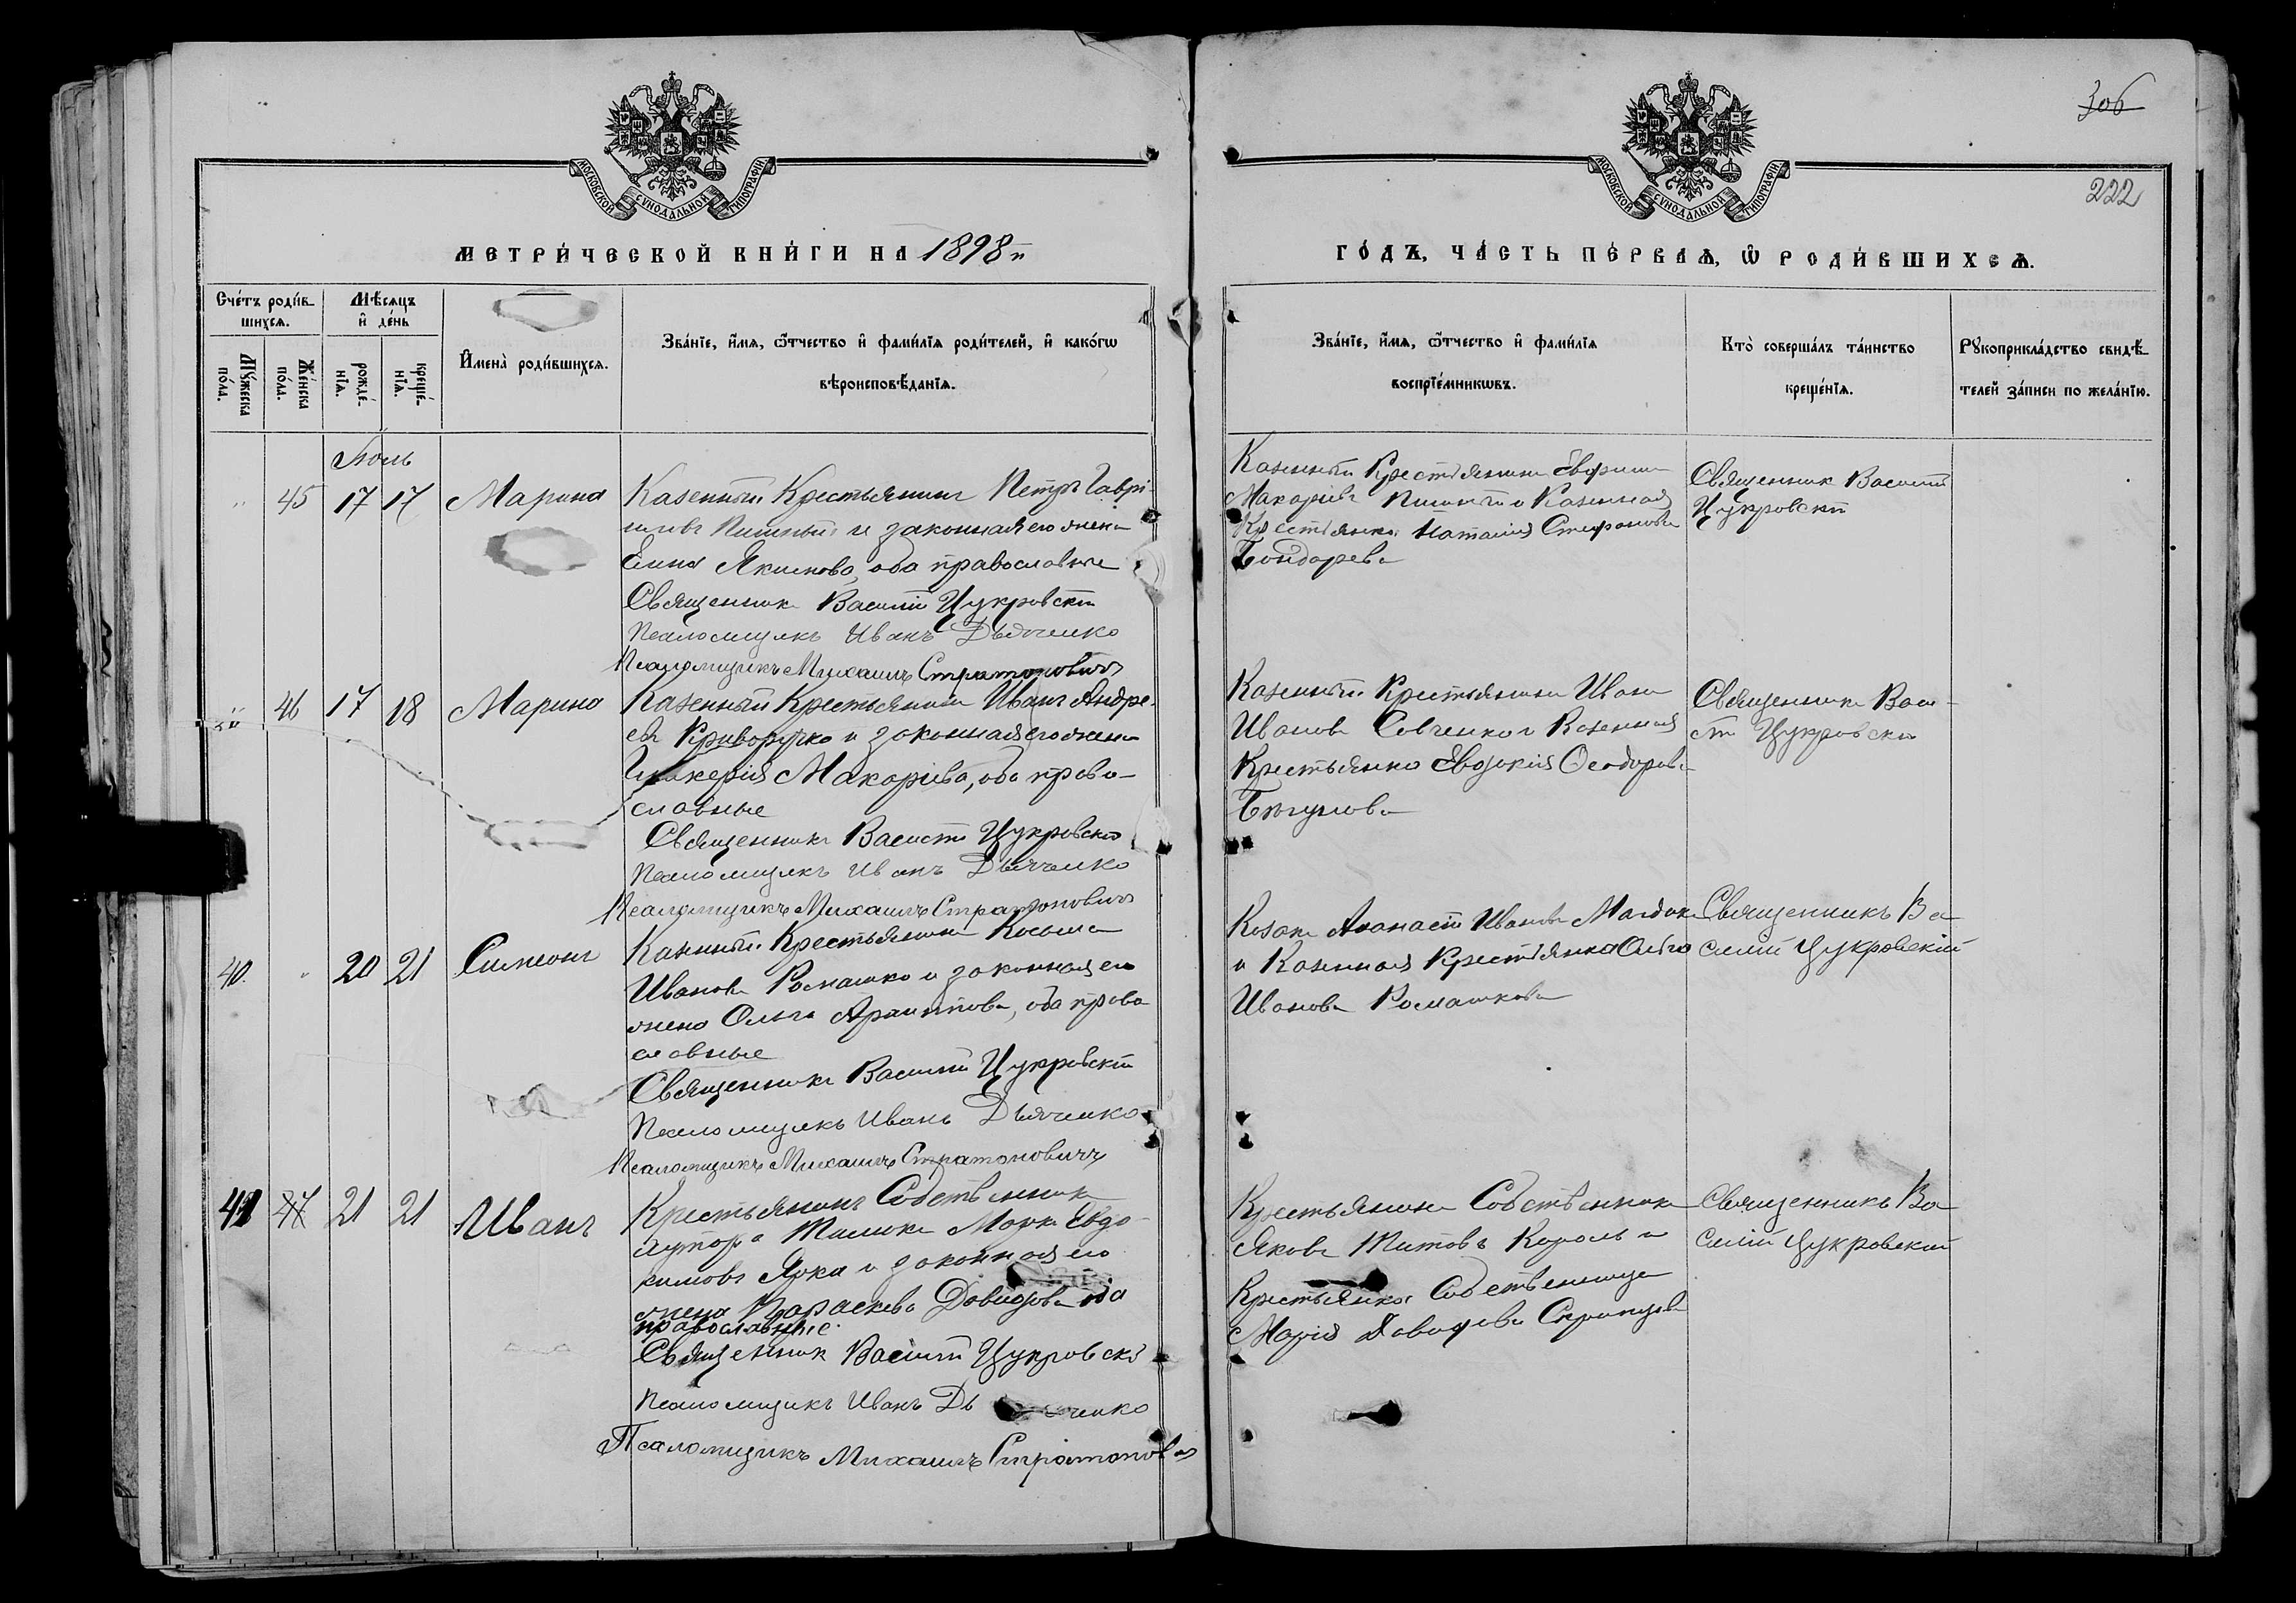 306
222
МОСКОВСКОЙ СѴНОДАЛЬНОЙ ТИПОГРАФІИ
МОСКОВСКОЙ СѴНОДАЛЬНОЙ ТИПОГРАФІИ
МЕТРИ́ЧЕСКОЙ КНИ́ГИ НА 1898
ГО́ДЪ, ЧА́СТЬ ПЕ́РВАЯ, Ѡ РОДИ́ВШИХСЯ.
Сче́тъ роди́в-
шихсѧ.
Мꙋ́жеска
по́ла.
Же́нска
по́ла.
Мѣ́сѧцъ
и҆ де́нь
рожде́-
нїѧ.
креще́-
нїѧ.
И҆мена̀ роди́вшихсѧ.
Зва́нїе, и҆́мѧ, ѻ҆́тчество и҆ фами́лїѧ роди́телей, и҆ како́гѡ
вѣроисповѣ́данїѧ.
Зва́нїе, и҆́мѧ, ѻ҆́тчество и҆ фами́лїѧ
воспрїе́мникѡвъ.
Кто̀ соверша́лъ та́инство
креще́нїѧ.
Рꙋкоприкла́дство свидѣ́-
телей за́писи по жела́нїю.
Іюль
45 17 17 Марина
Казенный Крестьянинъ Петръ Гаврі-
иловъ и законная его жена
Якимова, оба православные
Священникъ Василій Цукровскій
Псаломщикъ Иванъ Дьяченко
Псаломщикъ Михаилъ Стратоновичъ
Казенный Крестьянинъ
Макаріевъ и Казенная
Крестьянка Наталія Стефанова
Бондарева
Священник Василій
Цукровскій
46 17 18 Марина
Казенный Крестьянинъ Иванъ Андре-
евъ Криворучко и законная его жена
Гликерія Макаріева, оба право-
славные
Священникъ Василій Цукровскій
Псаломщикъ Иванъ Дьяченко
Псаломщикъ Михаилъ Стратоновичъ
Казенный Крестьянинъ Иванъ
Ивановъ Савченко и Казенная
Крестьянка Евдокія Феодорова
Священникъ Васи-
лій Цукровскій
40 20 21 Симеонъ
Казенный Крестьянинъ Косьма
Ивановъ Ромашко и законная его
жена Ольга, оба право-
славные
Священникъ Василій Цукровскій
Псаломщикъ Иванъ Дьяченко
Псаломщикъ Михаилъ Стратоновичъ
Козакъ Афанасій Ивановъ
и Казенная Крестьянка Ольга
Иванова Ромашкова
Священникъ Ва-
силій Цукровскій
41 47 21 21 Иванъ
Крестьянинъ Собственникъ
хутора Марк Евдо-
кимовъ и законная его
жена Параскева Давидова оба
православные.
Священник Василій Цукровскій
Псаломщикъ Иванъ Дьяченко
Псаломщикъ Михаилъ Стратоновичъ
Крестьянинъ Собственникъ
Яковъ Титовъ Король и
Крестьянка Собственница
Марія Давидова
Священникъ Ва-
силій Цукровскій